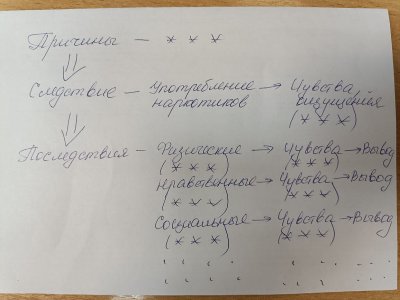 Причины — * * *
⇓
Следствие — Употребление наркотиков → Чувства, ощущения (* * *)
⇓
Последствия — Физические (* * *) → Чувства (* * *) → Вывод
Нравственные (* * *) → Чувства (* * *) → Вывод
Социальные (* * *) → Чувства (* * *) → Вывод